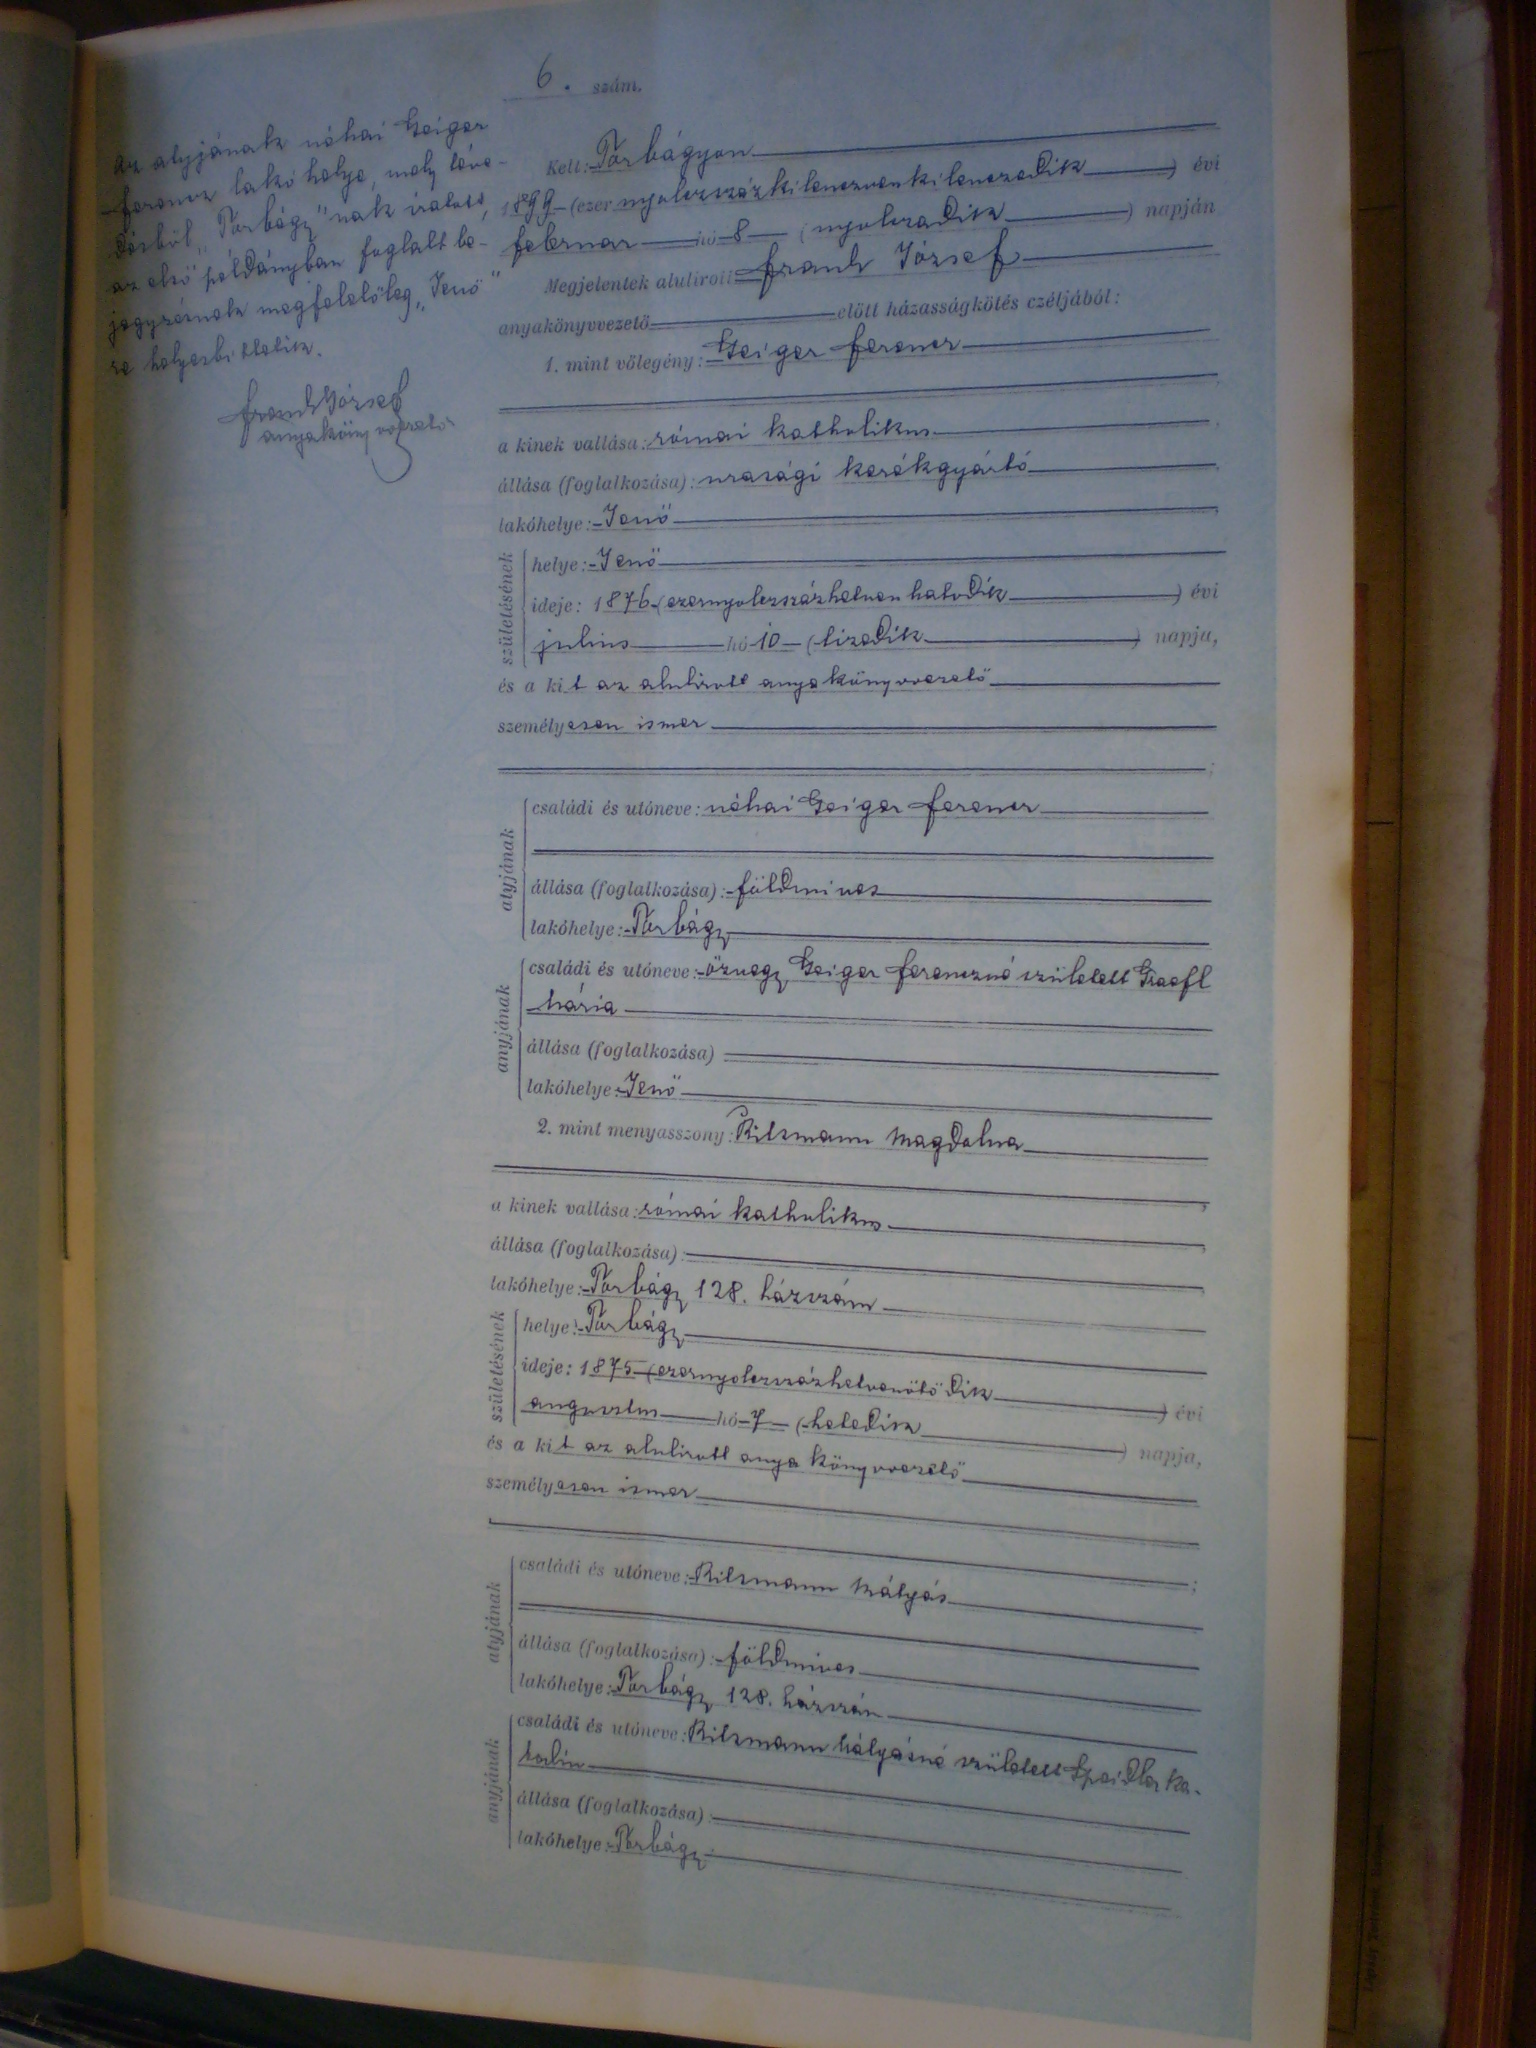 6. szám.
Az atyjának néhai Geiger
Ferencz lakó helye, mely téve-
désből „Torbágy"nak iratott,
az első példányban foglalt be-
jegyzésnek megfelelőleg „Jenő"
re helyesbittetik.
Frank József
anyakönyvvezető
Kelt: Torbágyon
1899 (ezer nyolczszázkilenczvenkilenczedik) évi
februar hó 8 (nyolczadik) napján
Megjelentek alulirott Frank József
anyakönyvvezető előtt házasságkötés czéljából:
1. mint vőlegény: Geiger Ferencz
a kinek vallása: római katholikus
állása (foglalkozása): urasági kerékgyártó
lakóhelye: Jenő
születésének
helye: Jenő
ideje: 1876 (ezernyolczszázhetvenhatodik) évi
julius hó 10 (tizedik) napja,
és a kit az alulirott anyakönyvvezető
személyesen ismer
atyjának
családi és utóneve: néhai Geiger Ferencz
állása (foglalkozása): földmives
lakóhelye: Torbágy
anyjának
családi és utóneve: özvegy Geiger Ferenczné született Graefl
Mária
állása (foglalkozása)
lakóhelye: Jenő
2. mint menyasszony: Ritzmann Magdolna
a kinek vallása: római katholikus
állása (foglalkozása):
lakóhelye: Torbágy 128. házszám
születésének
helye: Torbágy
ideje: 1875 (ezernyolczszázhetvenötödik) évi
augusztus hó 7 (hetedik) napja,
és a kit az alulirott anyakönyvvezető
személyesen ismer
atyjának
családi és utóneve: Ritzmann Mátyás
állása (foglalkozása): földmives
lakóhelye: Torbágy 128. házszám
anyjának
családi és utóneve: Ritzmann Mátyásné született Speidler Ka-
talin
állása (foglalkozása):
lakóhelye: Torbágy